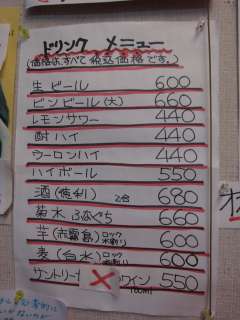 ドリンク メニュー
(価格は、すべて税込価格です。)
生ビール 600
ビンビール(大) 660
レモンサワー 440
酎ハイ 440
ウーロンハイ 440
ハイボール 550
酒(徳利) 2合 680
菊水 ふなぐち 660
芋(赤霧島) ロック 水割り 600
麦(白水) ロック 水割り 600
サントリー ワイン 550